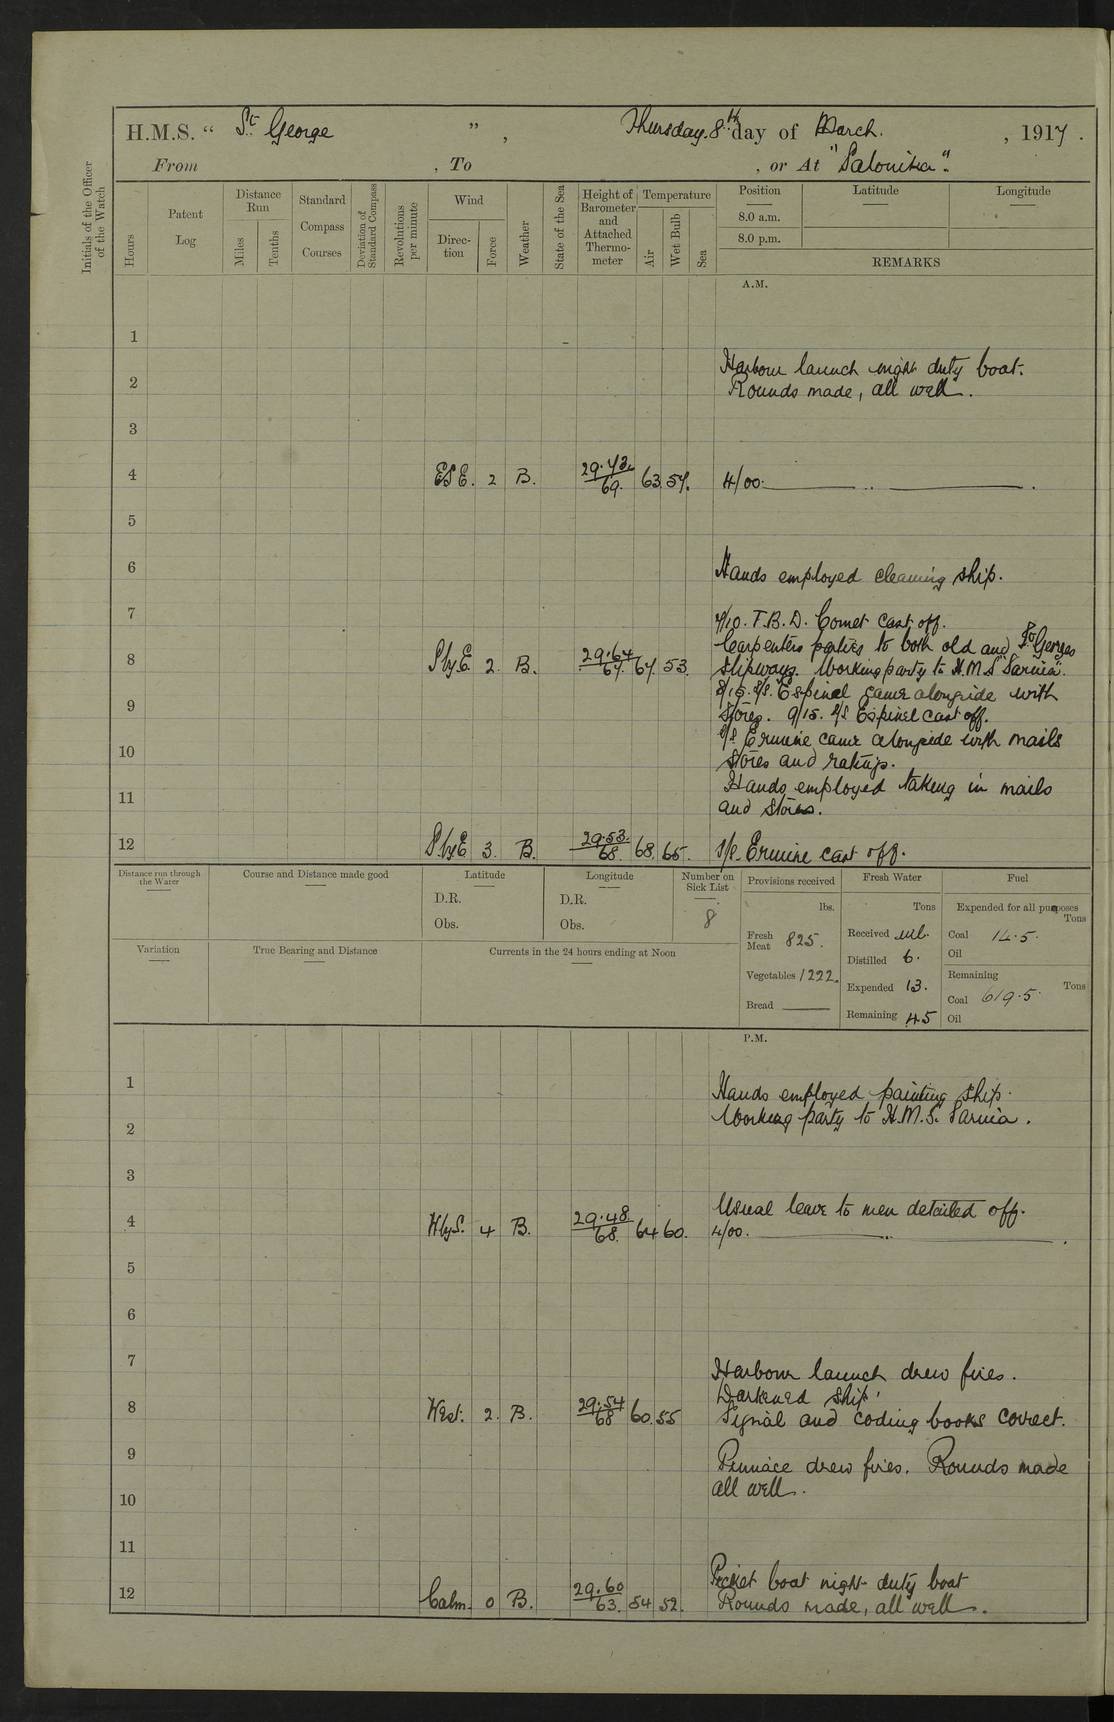 H.M.S. “ St George ” , Thursday. 8th day of March. , 1917 .
From , To , or At "Salonika".
Initials of the Officer of the Watch
Hours
Patent Log
Distance Run
Miles
Tenths
Standard Compass Courses
Deviation of Standard Compass
Revolutions per minute
Wind
Direc-tion
Force
Weather
State of the Sea
Height of Barometer and Attached Thermo-meter
Temperature
Air
Wet Bulb
Sea
Position
8.0 a.m.
8.0 p.m.
Latitude
Longitude
REMARKS
A.M.
1
Harbour launch night duty boat.
2
Rounds made, all well.
3
4 ESE. 2 B. 29.43./69. 63. 57. 4/00.
5
6
Hands employed cleaning ship.
7
7/10. T.B.D. Comet cast off.
Carpenters parties to both old and St Georges
8 S by E. 2. B. 29.64/67. 67. 53. slipways. Working party to H.M.S "Sarnia".
8/15. S/S. Espinel came alongside with
9
stores. 9/15. S/S Espinel cast off.
S/S Ermine came alongside with mails
10
stores and ratings.
Hands employed taking in mails
11
and stores.
12 S by E 3. B. 29.53./68. 68. 65. S/S. Ermine cast off.
Distance run through the Water
Course and Distance made good
Latitude
D.R.
Obs.
Longitude
D.R.
Obs.
Number on Sick List
8
Provisions received
lbs.
Fresh Meat 825.
Vegetables 1222.
Bread
Fresh Water
Tons
Received nil.
Distilled 6.
Expended 13.
Remaining 45
Fuel
Expended for all purposes
Tons
Coal 14.5.
Oil
Remaining
Tons
Coal 619.5.
Oil
Variation
True Bearing and Distance
Currents in the 24 hours ending at Noon
P.M.
1
Hands employed painting ship.
Working party to H.M.S. Sarnia.
2
3
Usual leave to men detailed off.
4 W by S. 4 B. 29.48/68. 64 60. 4/00.
5
6
7
Harbour launch drew fires.
Darkened ship.
8 West. 2. B. 29.54/68 60. 55 Signal and coding books correct.
9
Pinnace drew fires. Rounds made
all well.
10
11
Picket boat night duty boat
12 Calm. 0 B. 29.60/63. 54 52. Rounds made, all well.